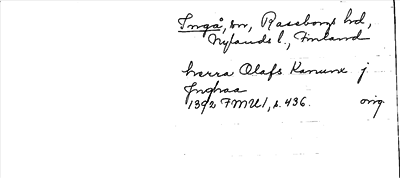 Ingå, sn, Raseborgs hd,
Nylands l., Finland
herra Olafs Kanunx j
Inghaa
1392 FMU 1, s. 436. orig.